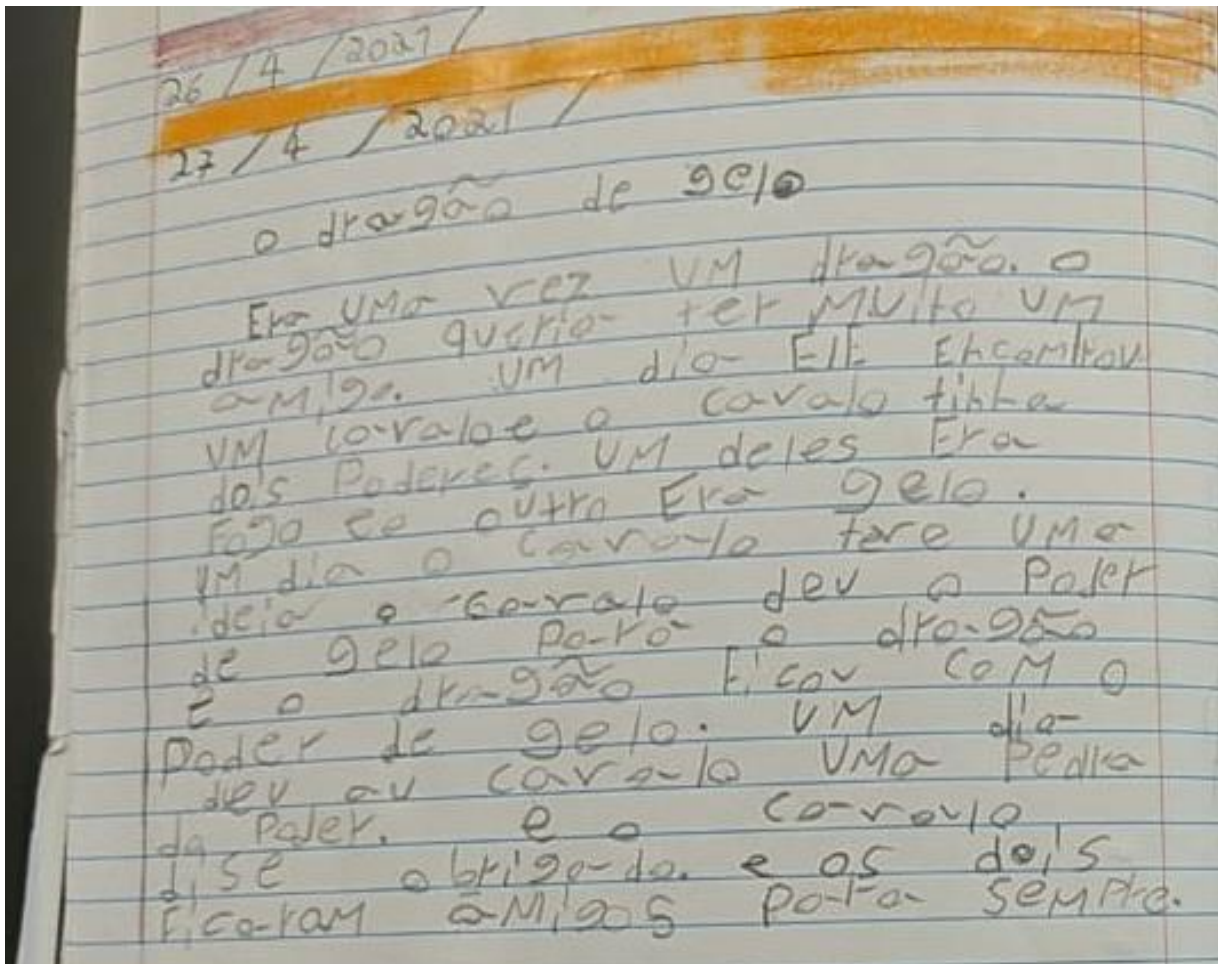 26/4/2021/
27/4/2021/
o dragão de gelo
Era UMa vez UM dragão. o
dragão queria ter MUito UM
aMigo. UM dia ElE EncomtroU
UM cavalo e o cavalo tinha
dois Poderes. UM deles Era
Fogo eo oUtro Era gelo.
UM dia o cavalo teve UMa
ideia o cavalo deU o Poder
de gelo Para o dragão
E o dragão FicoU CoM o
Poder de gelo. UM dia
deU aU cavalo UMa Pedra
do Poder. e o cavalo
dise obrigado. e os dois
FicaraM aMigos Para SeMPre.